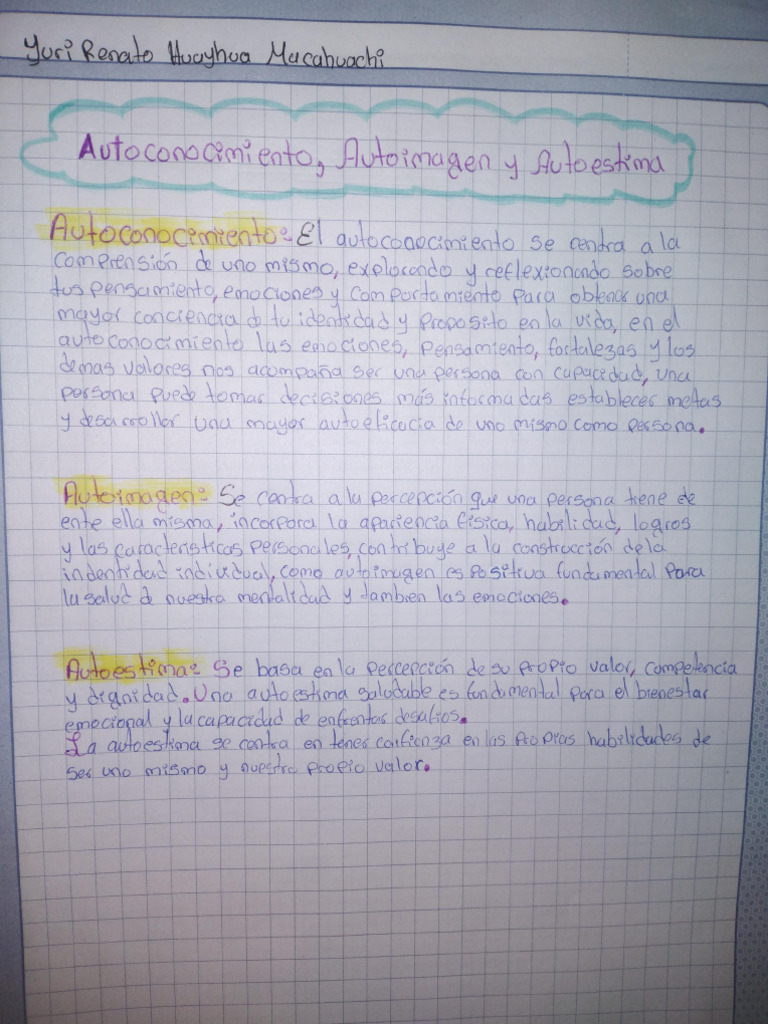 Yuri Renato Huayhua Macahuachi
Autoconocimiento, Autoimagen y Autoestima
Autoconocimiento: El autoconocimiento se centra a la
comprensión de uno mismo, explorando y reflexionando sobre
tus pensamiento, emociones y comportamiento para obtener una
mayor conciencia de tu identidad y proposito en la vida, en el
autoconocimiento las emociones, pensamiento, fortalezas y los
demas valores nos acompaña ser una persona con capacidad, una
persona puede tomar decisiones más informadas establecer metas
y desarrollar una mayor autoeficacia de uno mismo como persona.
Autoimagen: Se centra a la percepción que una persona tiene de
ente ella misma, incorpora la apariencia física, habilidad, logros
y las caracteristicas personales, contribuye a la construcción de la
indentidad individual, como autoimagen es positiva fundamental para
la salud de nuestra mentalidad y tambien las emociones.
Autoestima: Se basa en la percepción de su propio valor, competencia
y dignidad. Una autoestima saludable es fundamental para el bienestar
emocional y la capacidad de enfrentar desafios.
La autoestima se centra en tener confienza en las propias habilidades de
ser uno mismo y nuestro propio valor.